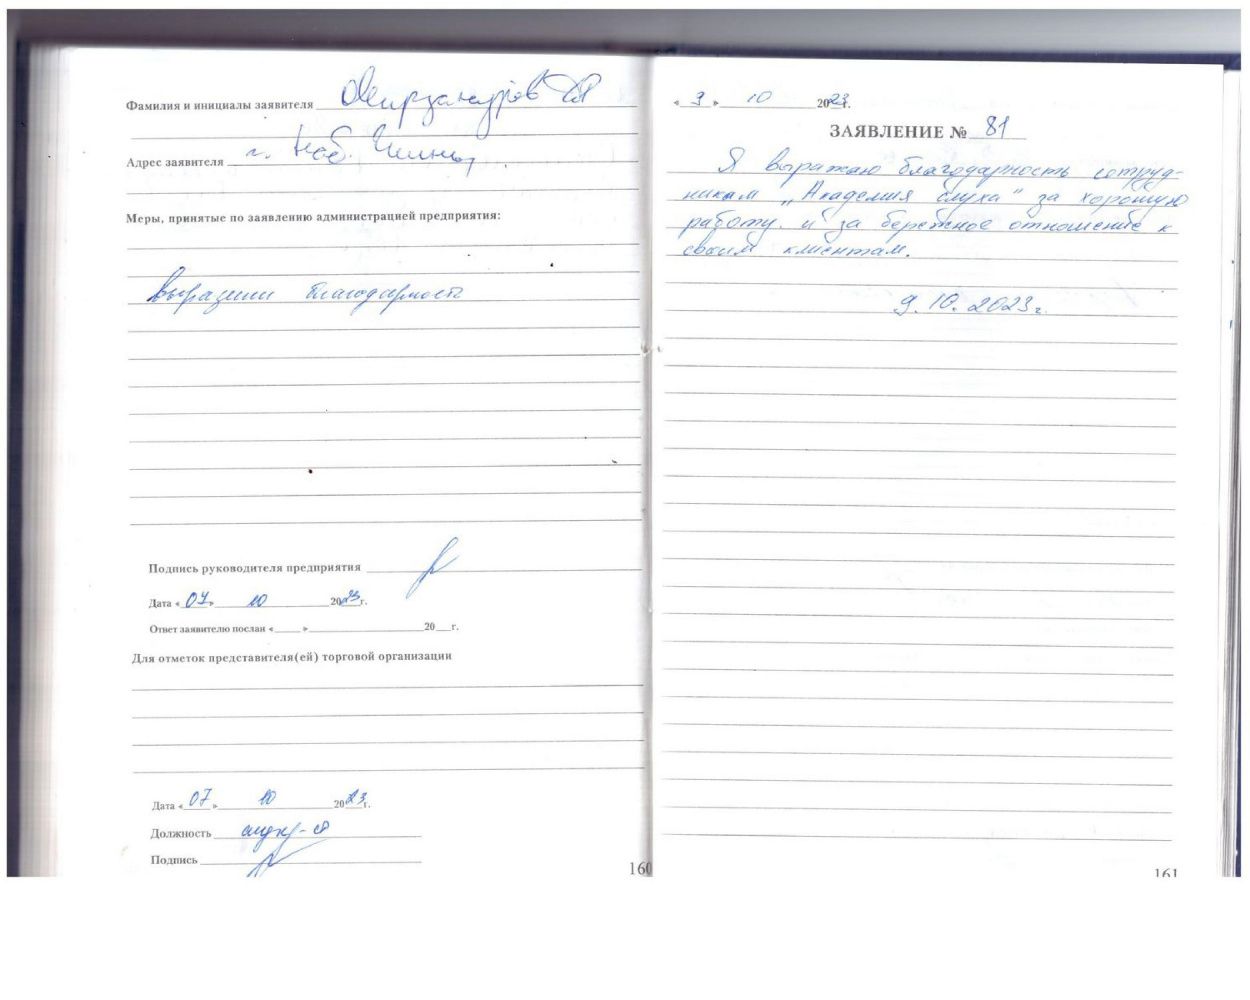 Фамилия и инициалы заявителя
Адрес заявителя г. Наб. Челны,
Меры, принятые по заявлению администрацией предприятия:
Выразили благодарность
Подпись руководителя предприятия
Дата « 07 » 10 2023 г.
Ответ заявителю послан « » 20 г.
Для отметок представителя(ей) торговой организации
Дата « 07 » 10 2023 г.
Должность
Подпись
160
« 9 » 10 2023 г.
ЗАЯВЛЕНИЕ № 81
Я выражаю благодарность сотруд-
никам „Академия слуха" за хорошую
работу. и за бережное отношение к
своим клиентам.
9.10.2023г.
161